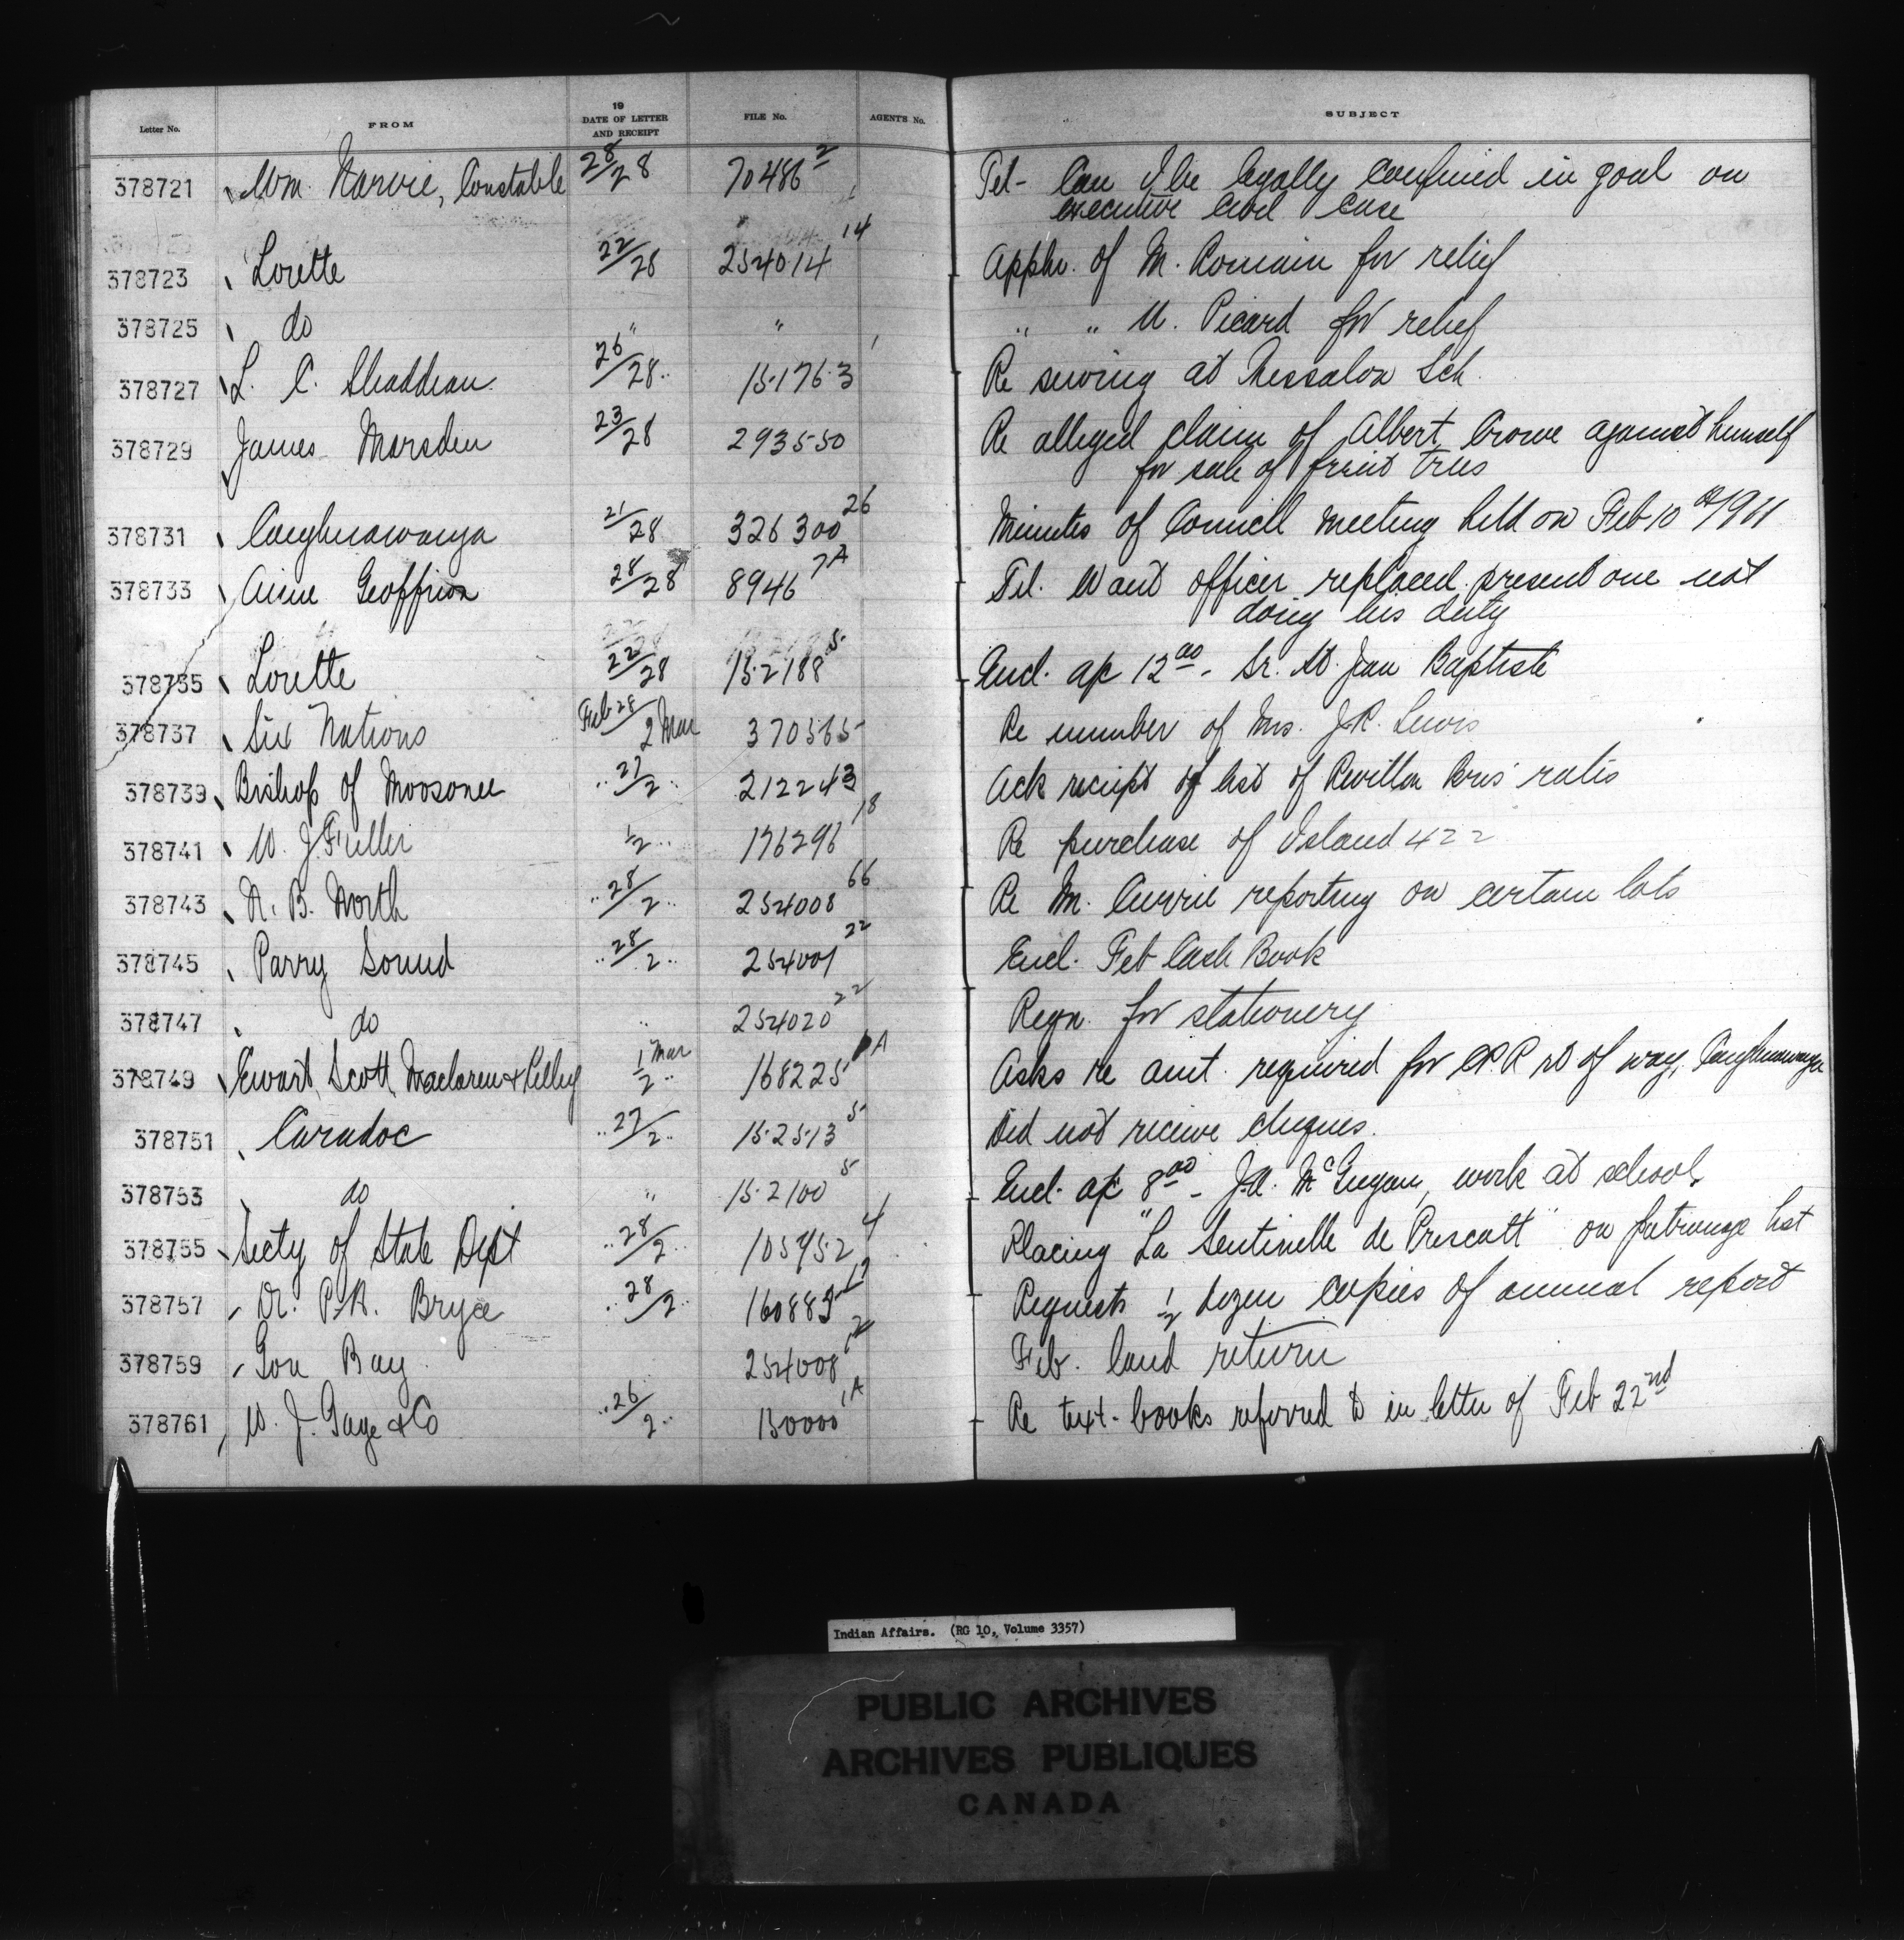 Letter No. FROM 19 DATE OF LETTER AND RECEIPT FILE No. AGENTS No. SUBJECT
378721 Wm. Narvie, Constable 28/28 70486 2 Tel- Can I be legally confined in goal on
executive civil case
378723 Lorette 22/28 254014 14 Appln. of M. Romain for relief
378725 do " " " " M. Picard for relief
378727 L. C. 26/28 15176-3 Re sewing at Thessalon Sch.
378729 James Marsden 23/28 293550 Re alleged claim of Albert Crowe against himself
for sale of fruit trees
378731 Caughnawaga 21/28 326300 26 Minutes of Council meeting held on Feb 10th/1911
378733 Aime Geoffrion 28/28 8946 7A Tel. Want officer replaced present one not
doing his duty
378735 Lorette 22/28 152188 5 Encl. a/c 12.00 - Sr. St. Jean Baptiste
378737 Six Nations Feb 28/2 Mar 370565 Re number of Mrs. J.R. Lewis
378739 Bishop of Moosonee " 27/2 " 212243 Ack receipt of list of Revillon Bros' rates
378741 W. J. Fuller 1/2 " 176296 18 Re purchase of Island 422
378743 N. B. North " 28/2 " 254008 66 Re M. Currie reporting on certain lots
378745 Parry Sound " 28/2 " 254001 22 Encl. Feb Cash Book
378747 do " 254020 22 Reqn. for stationery
378749 Ewart, Scott, Maclaren & Kelley 1 Mar/2 " 168225 1A Asks re amt. required for C.P.R rt of way, Caughnawaga
378751 Caradoc " 27/2 " 152513 5 Did not receive cheques.
378753 do " 152100 5 Encl. a/c 8.00 - J.A. McGugan, work at school.
378755 Secty of State Dept " 28/2 " 105952 4 Placing "La Sentinelle de Prescott" on patronage list
378757 Dr. P.H. Bryce " 28/2 " 160883 Requests 1/2 dozen copies of annual report
378759 Gore Bay 254008 Feb. land return
378761 W. J. Gage & Co " 26/2 " 130000 1A Re text-books referred to in letter of Feb 22nd
Indian Affairs. (RG 10, Volume 3357)
PUBLIC ARCHIVES
ARCHIVES PUBLIQUES
CANADA